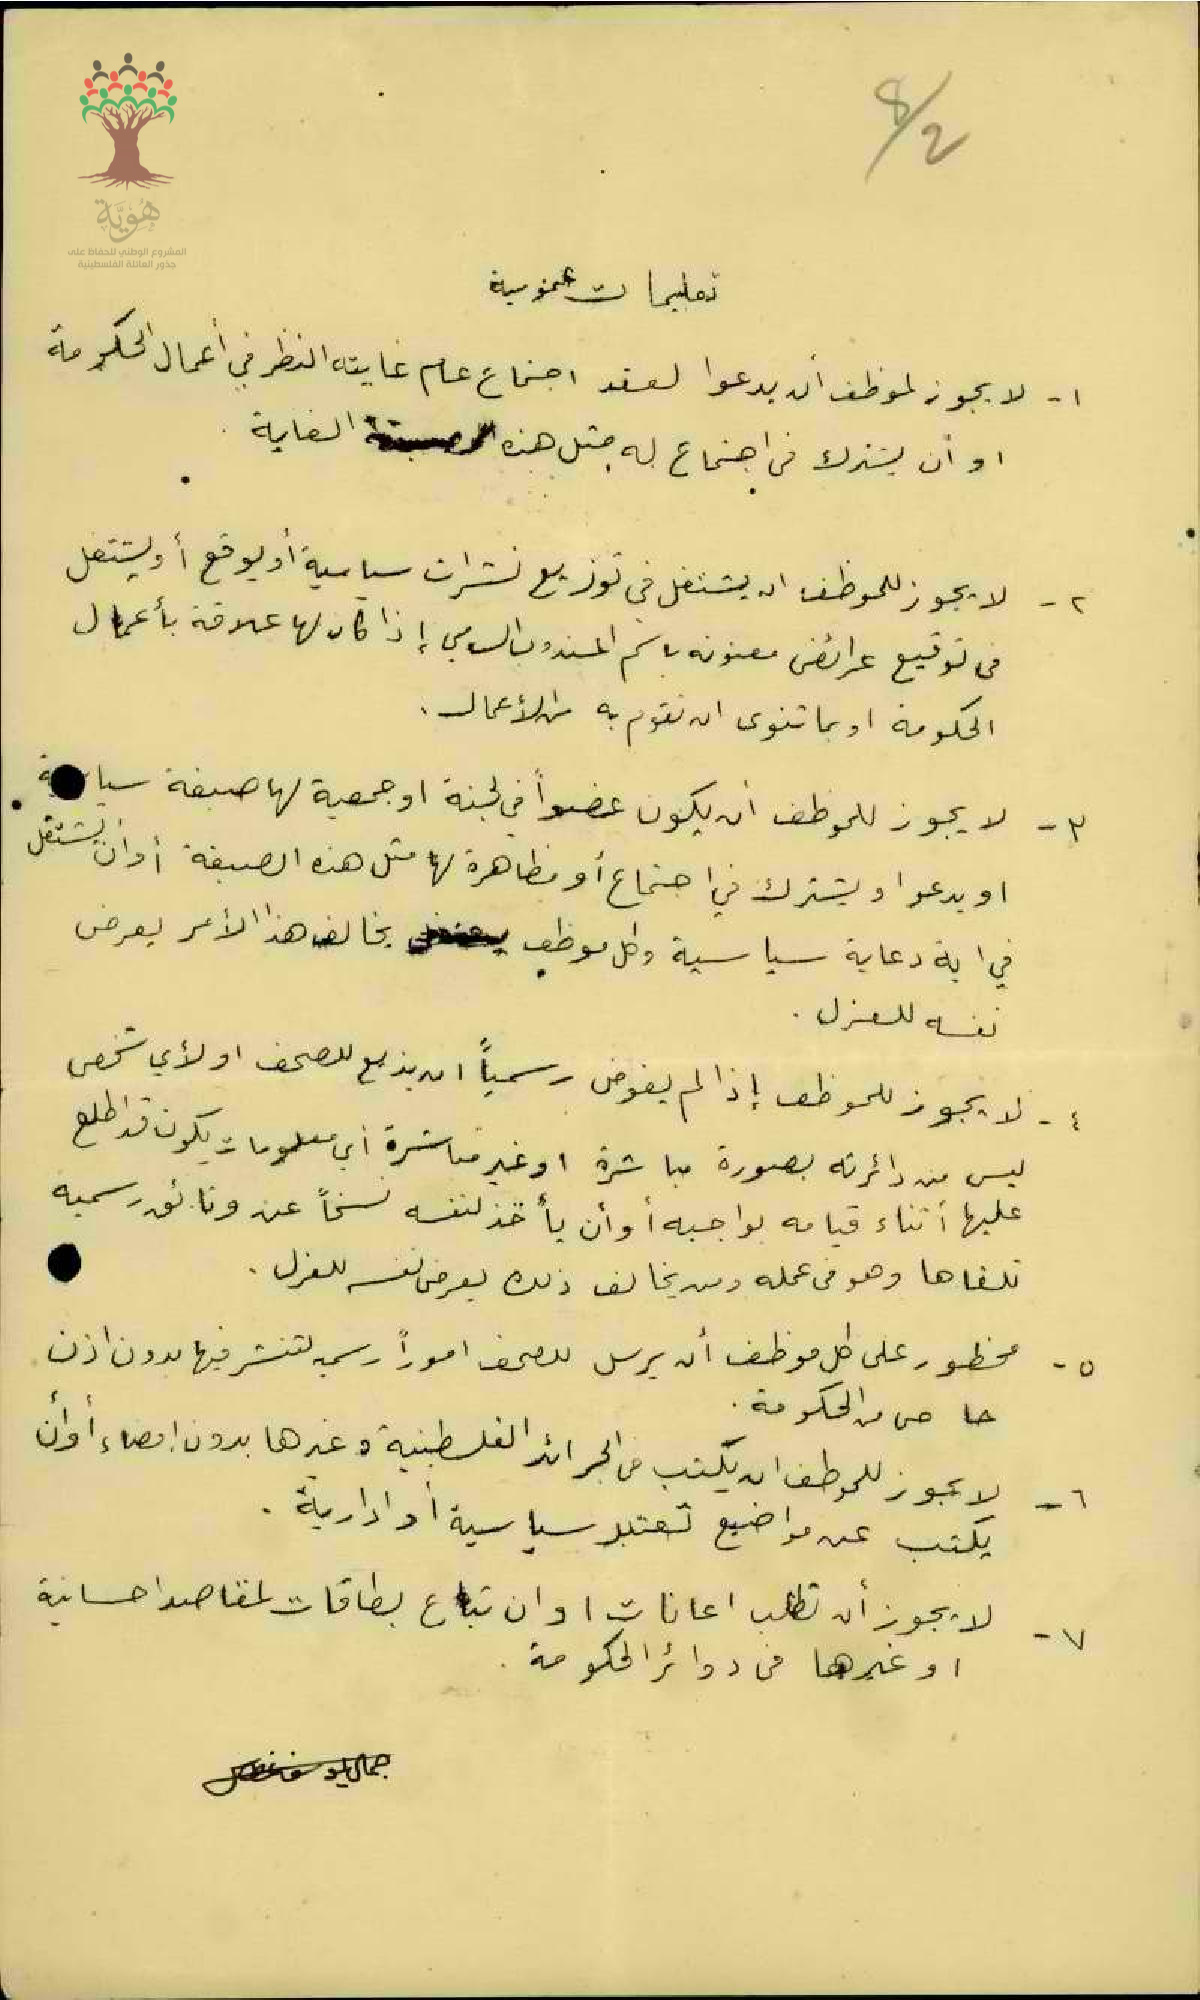 8/2
هُوِيَّة
المشروع الوطني للحفاظ على
جذور العائلة الفلسطينية
تعليمات عمومية
١- لا يجوز لموظف أن يدعوا لعقد اجتماع عام غايته النظر في أعمال الحكومة
او أن يشترك في اجتماع له مثل هذه الغاية .
٢- لا يجوز للموظف ان يشتغل في توزيع نشرات سياسية أو يوقع أو يشتغل
في توقيع عرائض معنونه باسم المندوب السامي إذا كان لها علاقة بأعمال
الحكومة او بما تنوى ان تقوم به من الأعمال .
٣- لا يجوز للموظف ان يكون عضواً في لجنة او جمعية لها صبغة سياسية
او يدعوا ويشترك في اجتماع أو مظاهرة لها مثل هذه الصبغة أو أن يشتغل
في اية دعاية سياسية وكل موظف يخالف هذا الأمر يعرض
نفسه للعزل .
٤- لا يجوز للموظف إذا لم يفوض رسمياً ان يذيع للصحف او لأي شخص
ليس من دائرته بصورة مباشرة او غير مباشرة أي معلومات يكون قد اطلع
عليها أثناء قيامه بواجبه أو أن يأخذ لنفسه نسخاً عن وثائق رسميه
تلقاها وهو في عمله ومن يخالف ذلك يعرض نفسه للعزل .
٥- محظور على كل موظف أن يرسل للصحف اموراً رسميه لتنشر فيها بدون اذن
خاص من الحكومة .
٦- لا يجوز للموظف ان يكتب في الجرائد الفلسطينية وغيرها بدون إمضاء أو أن
يكتب عن مواضيع تعتبر سياسية أو ادارية .
٧- لا يجوز أن تطلب اعانات او ان تباع بطاقات لمقاصد احسانية
او غيرها في دوائر الحكومة .
جمال يوسف